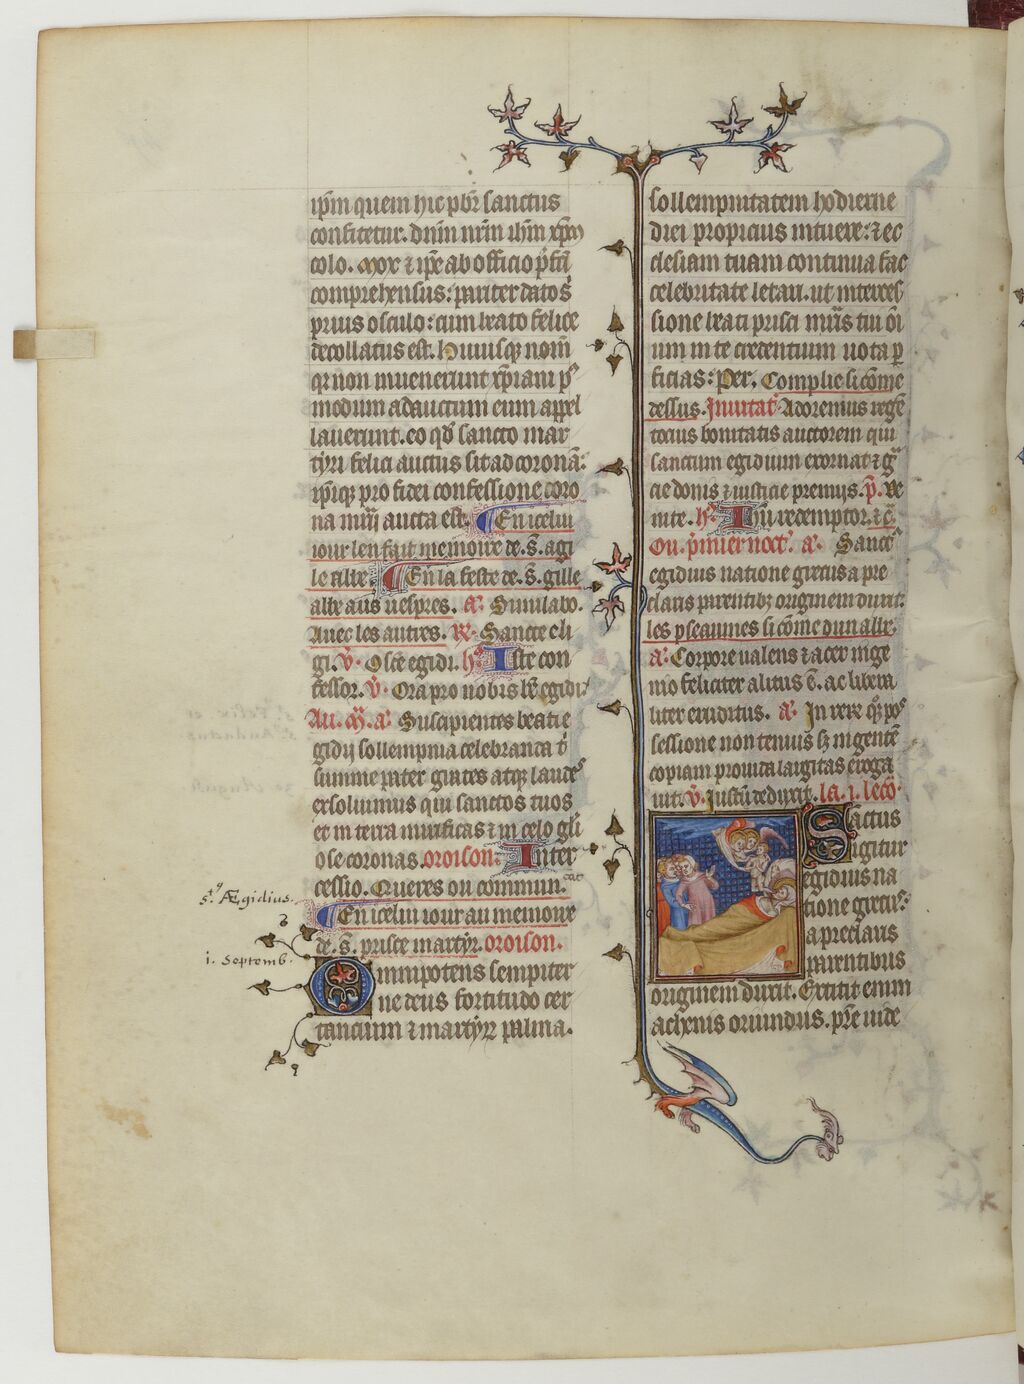 ip̄m quem hic pb̄r sanctus
confitetur. dn̄m nr̄m ih̄m xp̄m
colo. Mox ⁊ ip̄e ab officio p̄fc̄i
comprehensus: pariter datos
prius osculo: cum beato felice
decollatus est. huiusq; nom̄
qr non inuenerunt xp̄iani p⁹
modum adauctum eum appel
lauerunt. eo qd̄ sancto mar
tẏri felici auctus sit ad coronā:
ip̄iq; pro fidei confessione coro
na mr̄ij aucta est. En icelui
iour len fait memoire de. s̄. agi
le abbe. En la feste de. s̄. gille
abbe aus uespres. a᷎. Similabo.
Auec les autres. R. Sancte e
gi. v̄. Oste egidi. h᷎. Iste con
fessor. v̄. Ora pro nobis be egidi
Au. m̄. a᷎. Suscipientes beati
gidij sollempnia celebranda t̄
summe pater grates atq; laudes
exsoluimus qui sanctos tuos
et in terra mirificas ⁊ in celo gl̄i
ose coronas. oroison. Inter
cessio. Queres ou commun.
En icelui iour au memoire
de. s̄. prisce martẏr. oroison.
s.ᵗʸ Ægidius.
1. Septemb.
Omnipotens sempiter
ne deus fortitudo cer
tancium ⁊ martẏrꝝ palma.
sollempnitatem hodierne
diei propicius intuere: ⁊ ec
clesiam tuam continua fac
celebritate letari. ut interces
sione beati prisci mr̄is tui oī
um in te credentium uota ꝑ
ficias: Per. Complie si cōme
dessus. Inuitat᷎. Adoremus regē
tocius bonitatis auctorem qui
sanctum egidium exornat ⁊ gr̄
cie donis ⁊ iusticie premijs. p̄. Ve
nite. h᷎. Ih̄u redemptor. ⁊c̄.
Ou. p̄mier noct᷎. a᷎. Sanct⁹
egidius natione grecus a pre
claris parentibꝫ originem duxit.
les pseaumes si cōme dun abbe.
a᷎. Corpore ualens ⁊ acer inge
nio feliciter alitus ē. ac libera
liter eruditus. a᷎. In rere
sessione non tenuis sꝫ ingentē
copiam prouida largitas eroga
uit. v̄. Justū deduxit. la. i. lecō.
Sāctus
igitur
egidius na
tione grecus.
a preclaris
parentibus
originem duxit. Extitit enim
athenis oriundus. pr̄e uide